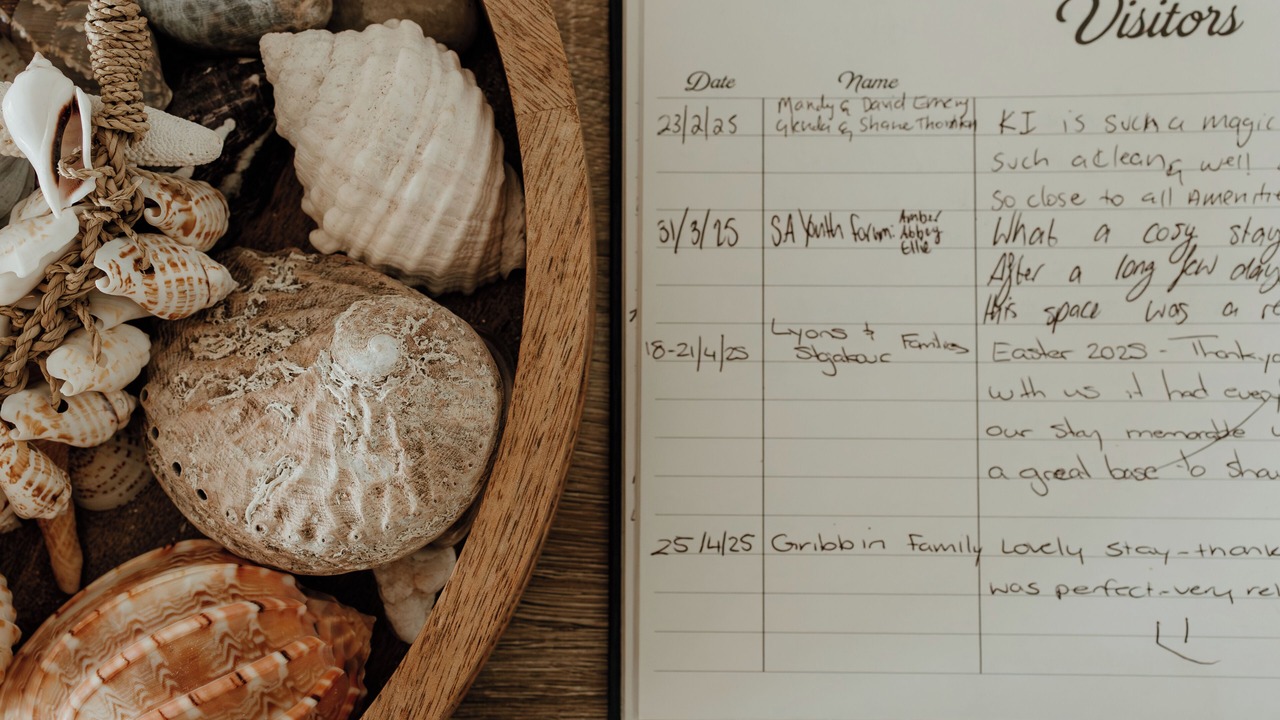 Visitors
Date Name
23/2/25 Mandy & David Emery KI is such a magic
Glenda & Shane Thornton
such a clean & well
so close to all Ameniti
31/3/25 SA Youth Forum: Amber Abbey Ellie What a cosy stay
After a long few day
this space was a re
18-21/4/25 Lyons & Families Easter 2025 - Thank yo
with us it had every
our stay memorable
a great base to sha
25/4/25 Gribbin Family Lovely stay - thank
was perfect - very rel